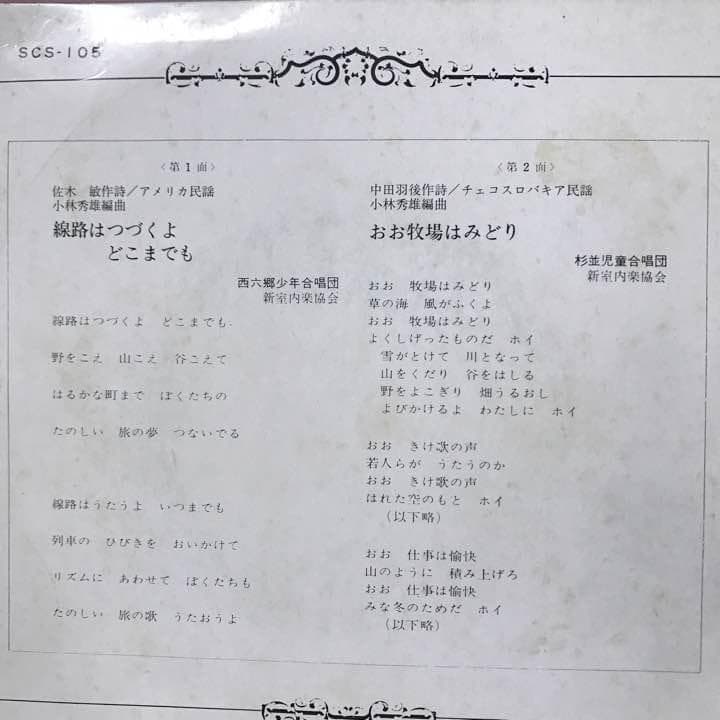 SCS-105
〈第1面〉
佐木 敏作詩/アメリカ民謡
小林秀雄編曲
線路はつづくよ
どこまでも
西六郷少年合唱団
新室内楽協会
線路はつづくよ どこまでも
野をこえ 山こえ 谷こえて
はるかな町まで ぼくたちの
たのしい 旅の夢 つないでる
線路はうたうよ いつまでも
列車の ひびきを おいかけて
リズムに あわせて ぼくたちも
たのしい 旅の歌 うたおうよ
〈第2面〉
中田羽後作詩/チェコスロバキア民謡
小林秀雄編曲
おお牧場はみどり
杉並児童合唱団
新室内楽協会
おお 牧場はみどり
草の海 風がふくよ
おお 牧場はみどり
よくしげったものだ ホイ
雪がとけて 川となって
山をくだり 谷をはしる
野をよこぎり 畑うるおし
よびかけるよ わたしに ホイ
おお きけ歌の声
若人らが うたうのか
おお きけ歌の声
はれた空のもと ホイ
(以下略)
おお 仕事は愉快
山のように 積み上げろ
おお 仕事は愉快
みな冬のためだ ホイ
(以下略)